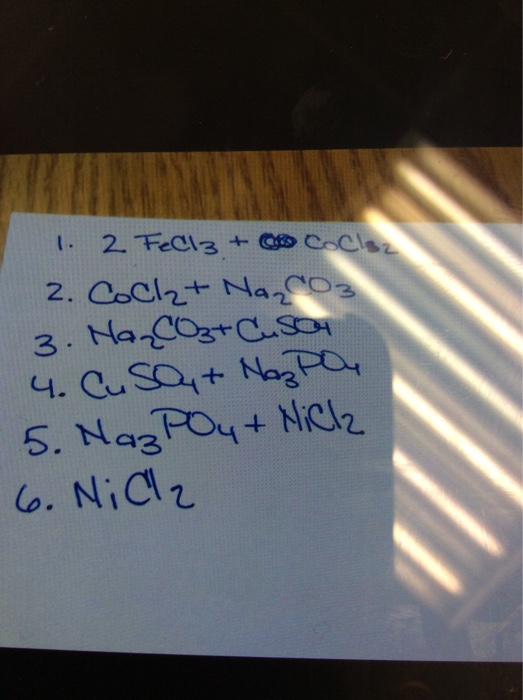 1. 2 FeCl3 + CoCl2
2. CoCl2 + Na2CO3
3. Na2CO3 + CuSO4
4. CuSO4 + Na3PO4
5. Na3PO4 + NiCl2
6. NiCl2